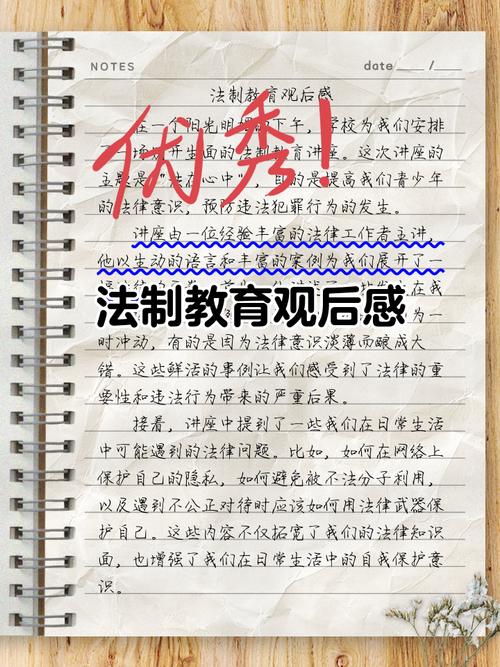 NOTES
date /
法制教育观后感
优秀!
在一个阳光明媚的下午，学校为我们安排
开生面的法制教育讲座。这次讲座的
主题是"法在心中"，目的是提高我们青少年
的法律意识，预防违法犯罪行为的发生。
讲座由一位经验丰富的法律工作者主讲，
他以生动的语言和丰富的案例为我们展开了一
法制教育观后感
在我
为一
时冲动，有的是因为法律意识淡薄而酿成大
错。这些鲜活的事例让我们感受到了法律的重
要性和违法行为带来的严重后果。
接着，讲座中提到了一些我们在日常生活
中可能遇到的法律问题。比如，如何在网络上
保护自己的隐私，如何避免被不法分子利用，
以及遇到不公正对待时应该如何用法律武器保
护自己。这些内容不仅拓宽了我们的法律知识
面，也增强了我们在日常生活中的自我保护意
识。